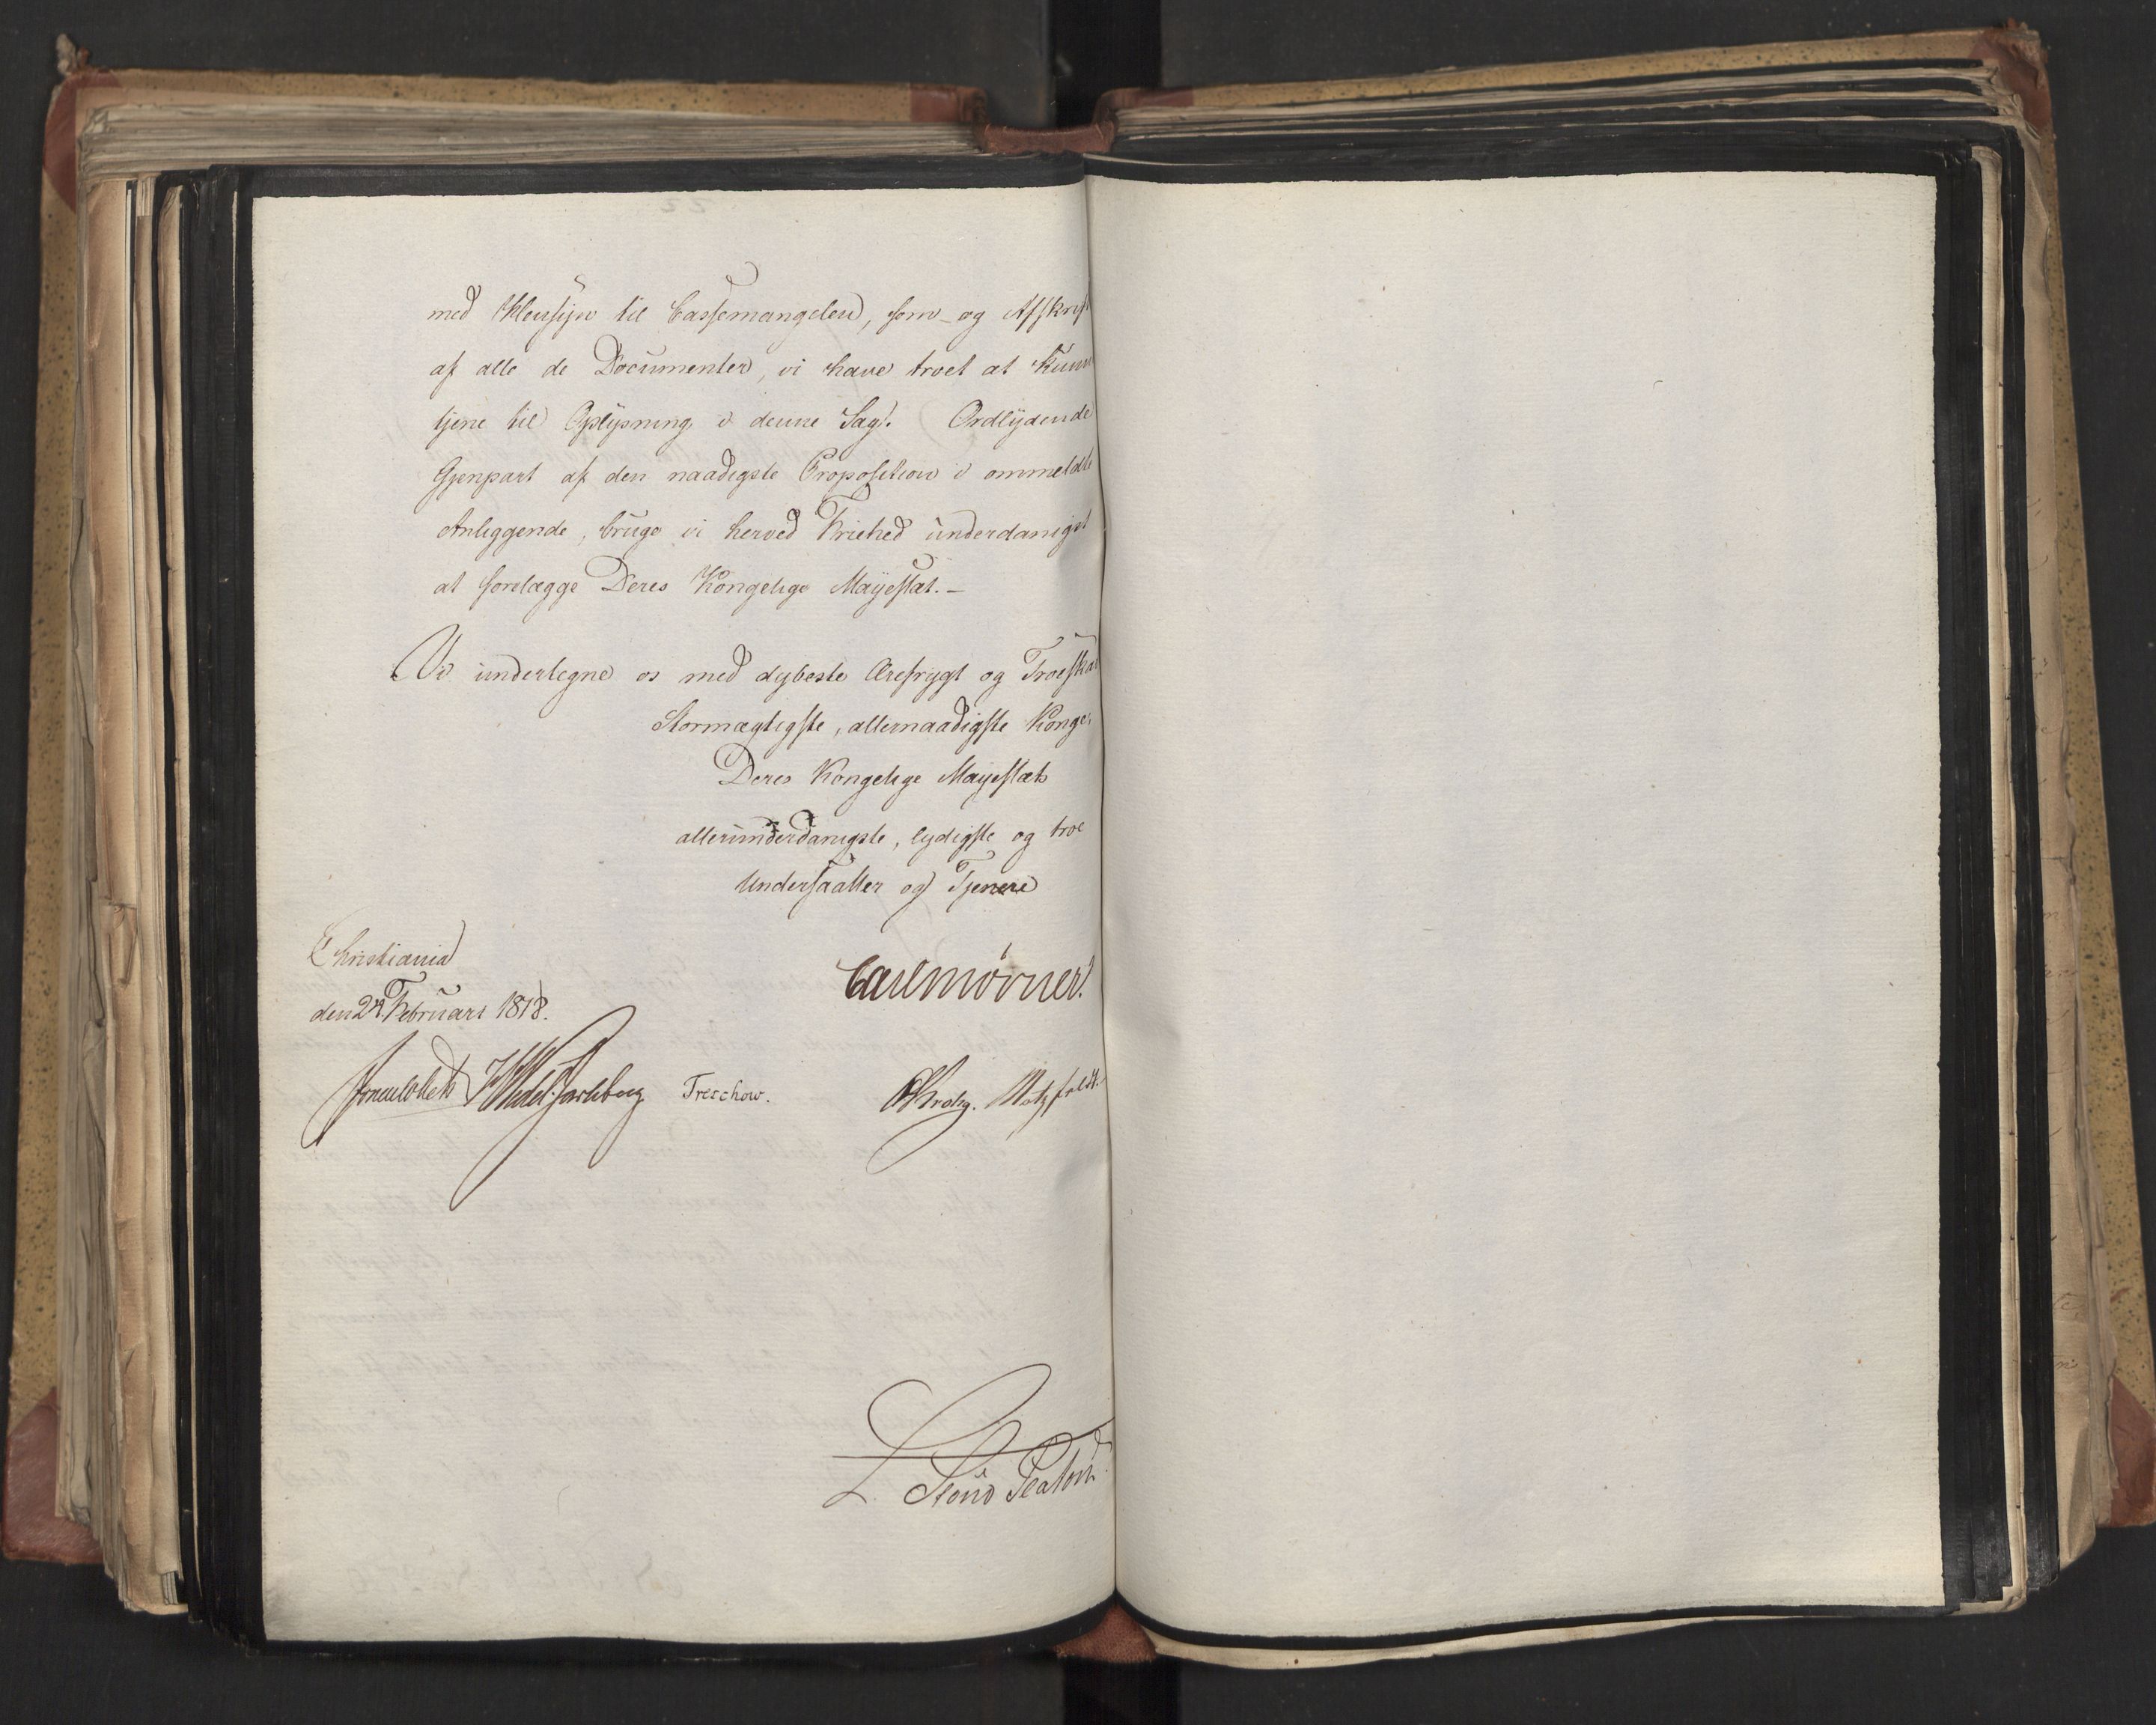 med Hensyn til Cassemangelen, som og Afskrift
af alle de Documenter, vi have troet at kunne
tjene til Oplysning i denne Sag. Ordlydende
Gjenpart af den naadigste Proposition i ommeldte
Anliggende, bruge vi herved Friehed underdanigst
at forelægge Deres Kongelige Mayestæt. –
Vi undertegne os med dybeste Ærefrygt og Troeskab
Stormægtigste, allernaadigste Konge
Deres Kongelige Mayestæts
allerunderdanigste, lydigste og troe
Undersaatter og Tjenere
Christiania
den 24. Februari 1818.
Carl Mørner.
Jonas Collett HWedel Jarlsberg Treschow. CKrohg. Motzfeldt.
L. Stoud Platou